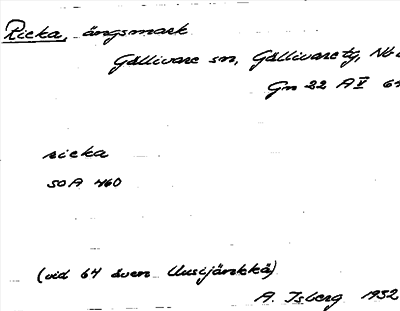 Ricka, ängsmark
Gällivare sn, Gällivare tg, Nb
Gn 22 A V 64
ricka
SOA 460
(vid 64 även Uusijänkkä)
A. Isberg 1932